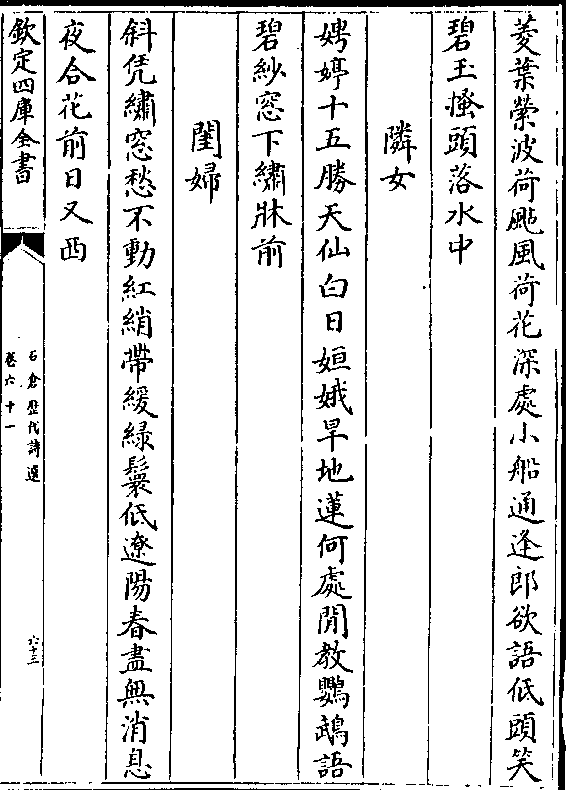 菱葉縈波荷颭風荷花深處小船通逢郎欲語低頭笑
碧玉搔頭落水中
隣女
娉婷十五勝天仙白日姮娥旱地蓮何處閒教鸚鵡語
碧紗窓下繡牀前
閨婦
斜凭繡窓愁不動紅綃帶緩緑鬟低遼陽春盡無消息
夜合花前日又西
欽定四庫全書
石倉歴代詩選
卷六十一
六十三